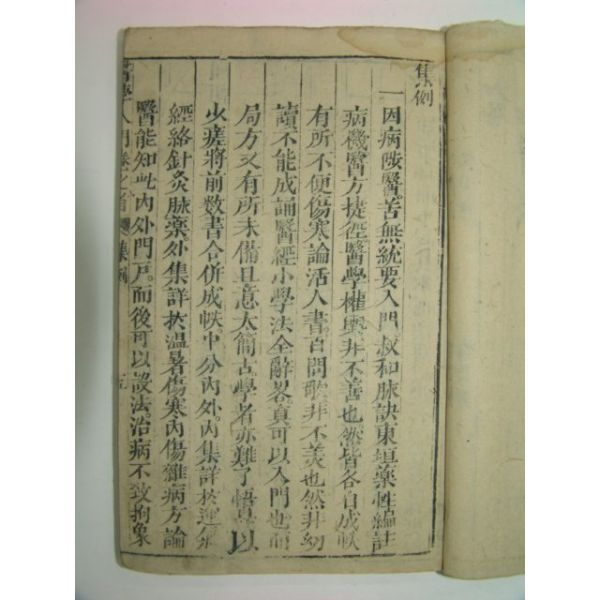 集例
一因病陂醫苦無統要入門叔和脉訣東垣藥性編註
病機醫方捷徑醫學權輿非不善也然皆各自成帙
有所不便傷寒論活人書百問歌非不美也然非幼
讀不能成誦醫經小學法全辭畧真可以入門也而
局方又有所未備且意太簡古學者亦難了悟是以
少瘥將前数書合併成帙中分內外內集詳於運氣
經絡針灸脉藥外集詳於溫暑傷寒內傷雜病方論
醫能知此內外門戶而後可以設法治病不致拘象
醫學入門卷之首 集例 五